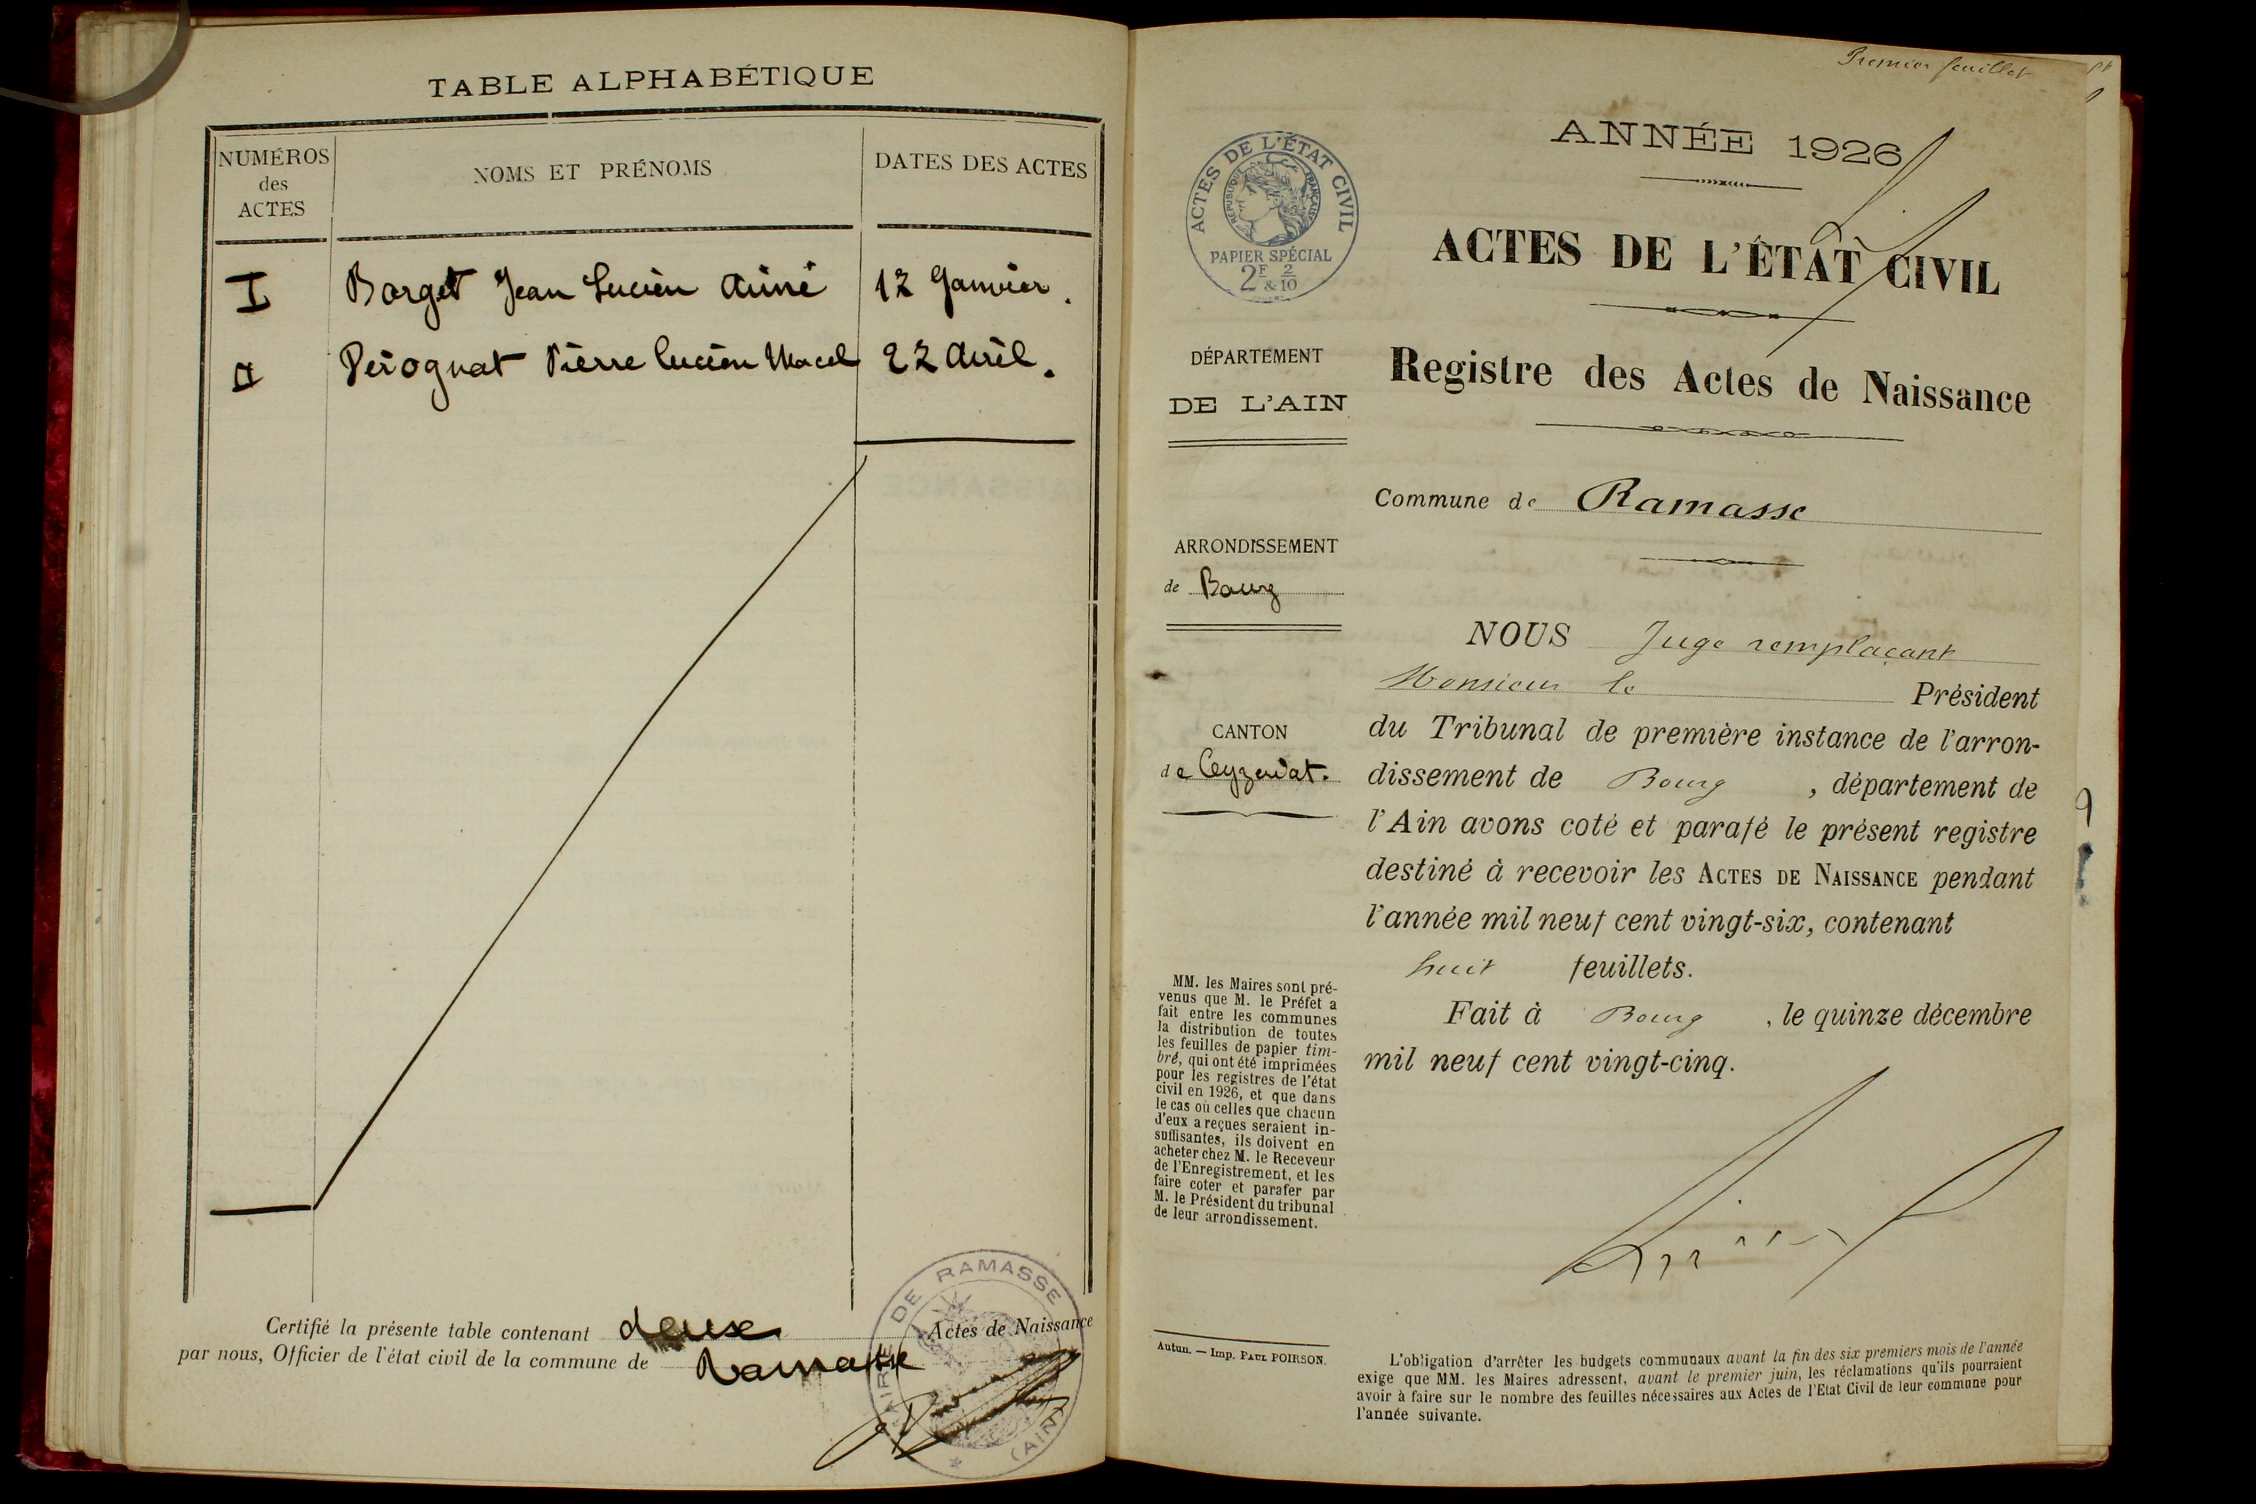 TABLE ALPHABÉTIQUE
NUMÉROS
des
ACTES
NOMS ET PRÉNOMS
DATES DES ACTES
I Borget Jean Lucien Aimé 12 Janvier.
II Pérognat Pierre Lucien Marcel 22 Avril.
Certifié la présente table contenant deux Actes de Naissance
par nous, Officier de l'état civil de la commune de Ramasse
MAIRIE DE RAMASSE
(AIN)
Premier feuillet
ANNÉE 1926
ACTES DE L'ÉTAT CIVIL
RÉPUBLIQUE FRANÇAISE
PAPIER SPÉCIAL
2F & 2/10
ACTES DE L'ÉTAT CIVIL
Registre des Actes de Naissance
DÉPARTEMENT
DE L'AIN
Commune de Ramasse
ARRONDISSEMENT
de Bourg
CANTON
de Ceyzeriat.
NOUS Juge remplaçant
Monsieur le Président
du Tribunal de première instance de l'arron-
dissement de Bourg, département de
l'Ain avons coté et parafé le présent registre
destiné à recevoir les ACTES DE NAISSANCE pendant
l'année mil neuf cent vingt-six, contenant
huit feuillets.
Fait à Bourg, le quinze décembre
mil neuf cent vingt-cinq.
MM. les Maires sont pré-
venus que M. le Préfet a
fait entre les communes
la distribution de toutes
les feuilles de papier tim-
bré, qui ont été imprimées
pour les registres de l'état
civil en 1926, et que dans
le cas où celles que chacun
d'eux a reçues seraient in-
suffisantes, ils doivent en
acheter chez M. le Receveur
de l'Enregistrement, et les
faire coter et parafer par
M. le Président du tribunal
de leur arrondissement.
Autun. — Imp. PAUL POIRSON.
L'obligation d'arrêter les budgets communaux avant la fin des six premiers mois de l'année
exige que MM. les Maires adressent, avant le premier juin, les réclamations qu'ils pourraient
avoir à faire sur le nombre des feuilles nécessaires aux Actes de l'Etat Civil de leur commune pour
l'année suivante.